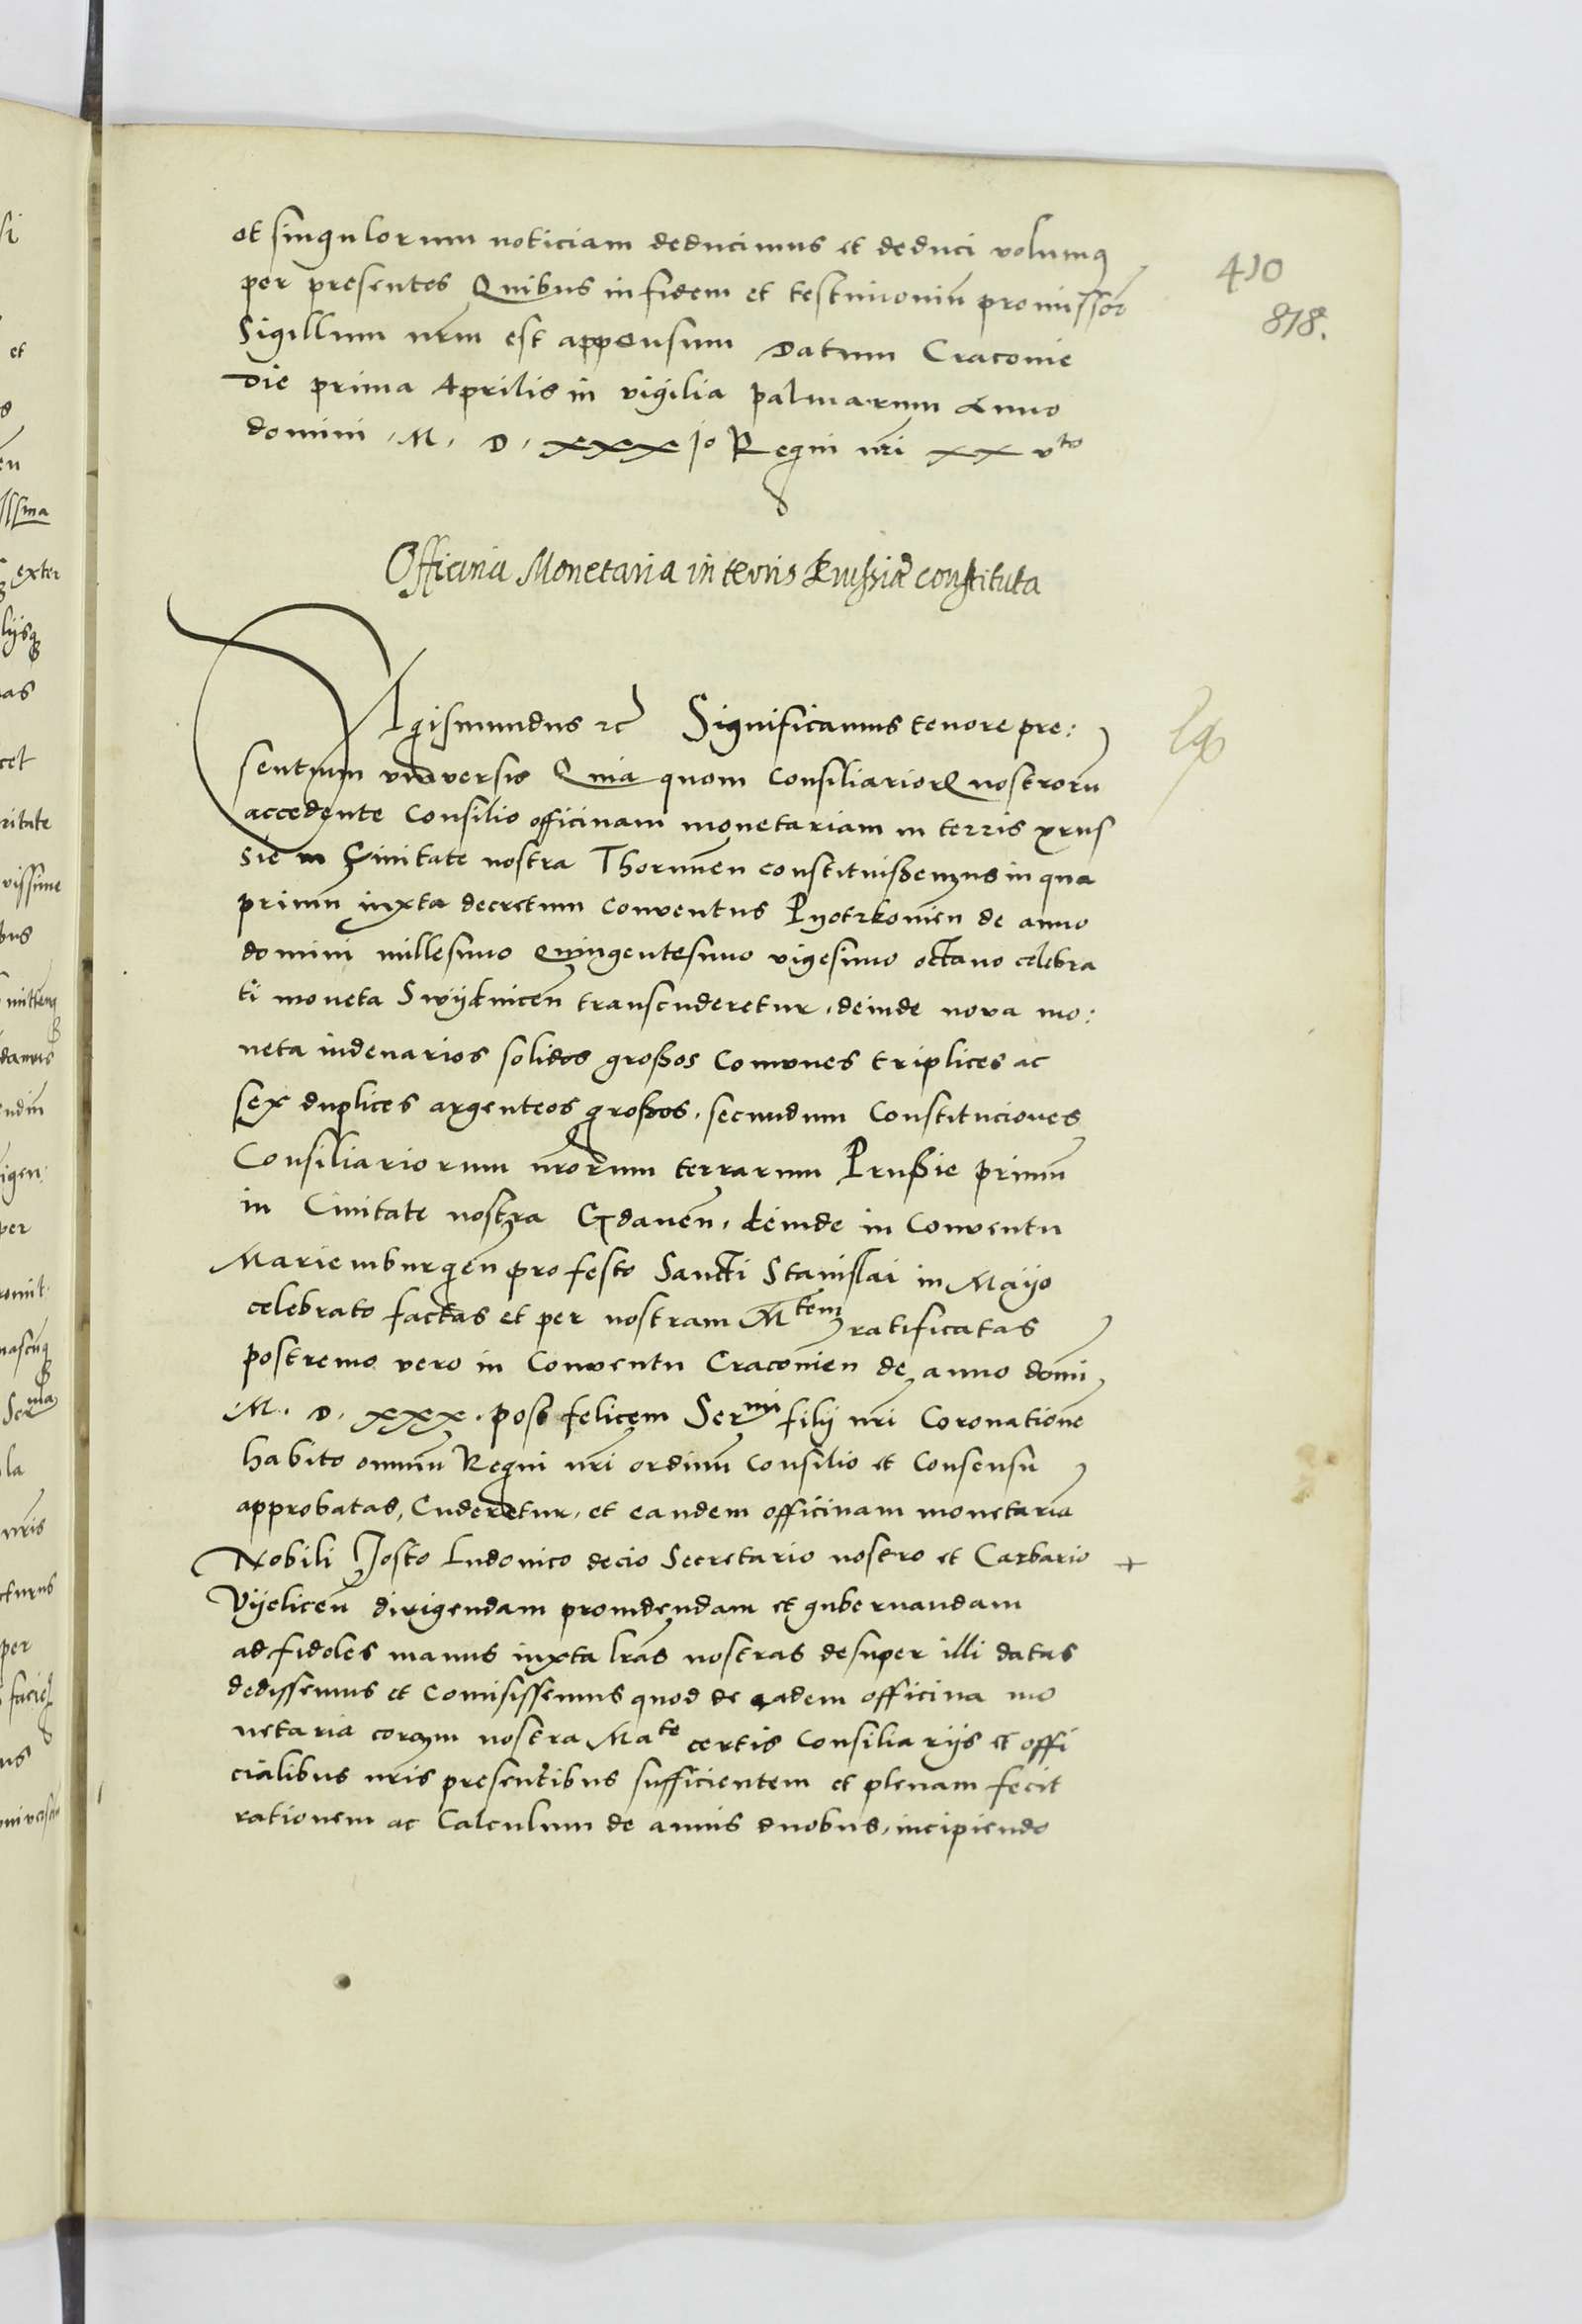 et singulorum noticiam deducimus et deduci volumus
per presentes Quibus in fidem et testimoniū promissor
Sigillum nrm̄ est appensum Datum Cracovie
Die prima Aprilis in vigilia palmarum Anno
domini . M . D . xxxjo Regni nrī xxvto
410
818.
Officina Monetaria in terris Prussiae constituta
Sigismundus etc Significamus tenore pre:
sentium universis Quia quom Consiliariorꝝ nostrorū
accedente Consilio officinam monetariam in terris prus
sie in Civitate nostra Thorunen̄ constituißemus in qua
primū iuxta decretum conventus Pyotrkovien̄ de anno
domini millesimo quingentesimo vigesimo octavo celebra
ti moneta Swydnicen̄ transcuderetur, deinde nova mo:
neta in denarios solidos großos Com̄unes triplices ac
sex duplices argenteos großos, secundum Constituciones
Consiliariorum nrōrum terrarum Prußie primū
in Civitate nostra Gdanen̄, deinde in Conventu
Mariemburgen̄ pro festo Sancti Stanislai in Mayo
celebrato factas et per nostram Mtem ratificatas
postremo vero in Conventu Cracovien̄ de anno domi
M. D. xxx. post felicem Sermi filij nrī Coronatione
habito omniū Regni nrī ordinū Consilio et Consensu
approbatas, Cuderetur, et eandem officinam monetariā
Nobili Josto Ludovico decio Secretario nostro et Carbario +
Vyelicen̄ dirigendam providendam et gubernandam
ad fideles manus iuxta lrās nostras desuper illi datas
dedissemus et Com̄isissemus quod de eadem officina mo
netaria coram nostra Mate certis Consiliarijs et offi
cialibus nrīs presentibus sufficientem et plenam fecit
rationem ac Calculum de annis duobus, incipiendo